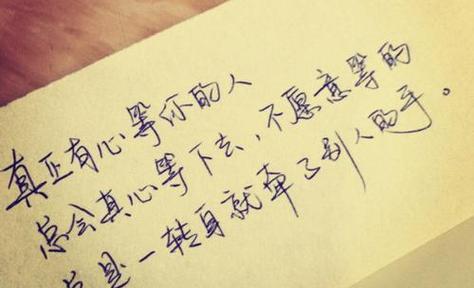 真正有心等你的人
总会真心等下去，不愿意等的
总是一转身就牵了别人的手。